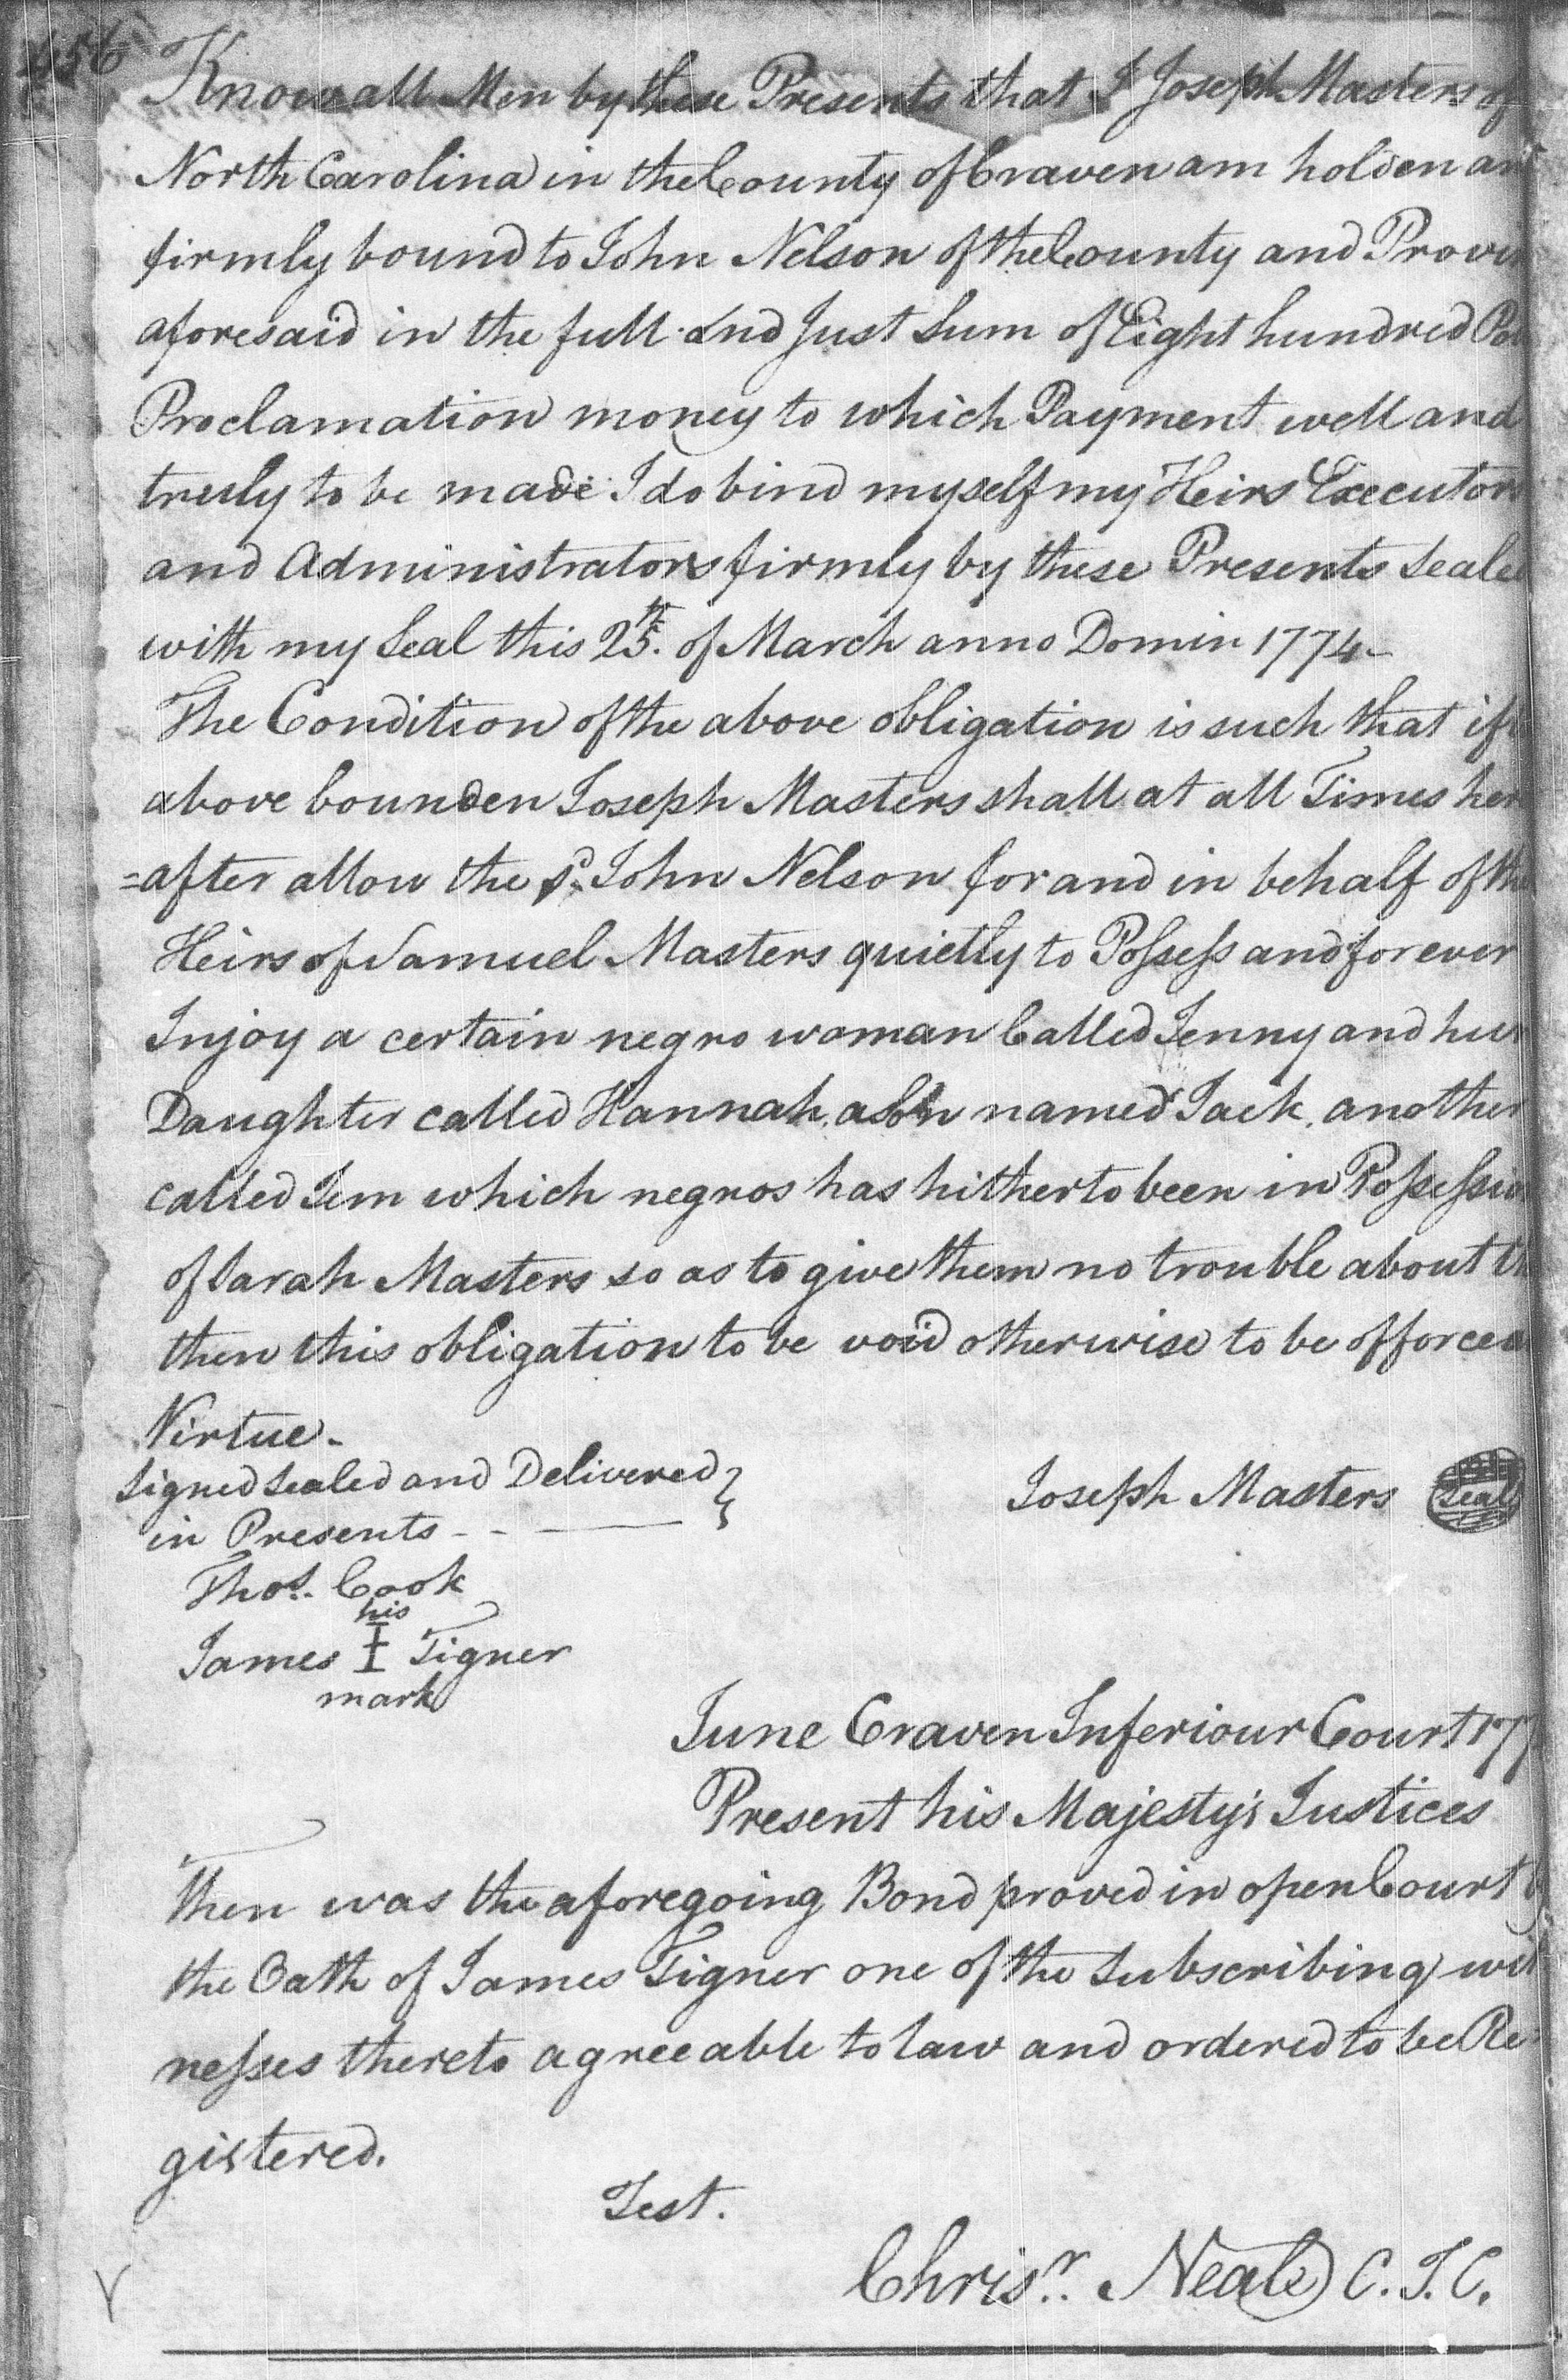 Know all Men by these Presents that I Joseph Masters of
North Carolina in the County of Craven am holden an
firmly bound to John Nelson of the County and Provin
aforesaid in the full and Just Sum of Eight hundred Po
Proclamation money to which Payment well and
truly to be made I do bind myself my Heirs Executors
and Administrators firmly by these Presents Sealed
with my Seal this 25th. of March anno Domin 1774-
The Condition of the above obligation is such that if
above bounden Joseph Masters shall at all Times her
=after allow the sd. John Nelson for and in behalf of the
Heirs of Samuel Masters quietly to Possess and forever
Injoy a certain negro woman Called Jenny and her
Daughter called Hannah, a Son named Jack, another
called Jem which negros has hitherto been in Possessio
of Sarah Masters so as to give them no trouble about th
then this obligation to be void otherwise to be of force
Virtue-
Signed Sealed and Delivered }
in Presents - - —
Joseph Masters Seal
Thos. Cook
his
James I Tigner
mark
June Craven Inferiour Court 177
Present his Majesty's Justices
Then was the aforegoing Bond proved in open Court by
the Oath of James Tigner one of the Subscribing wit
nesses thereto agreeable to law and ordered to be Re
gistered.
Test.
Chrisr. Neale C.I.C.